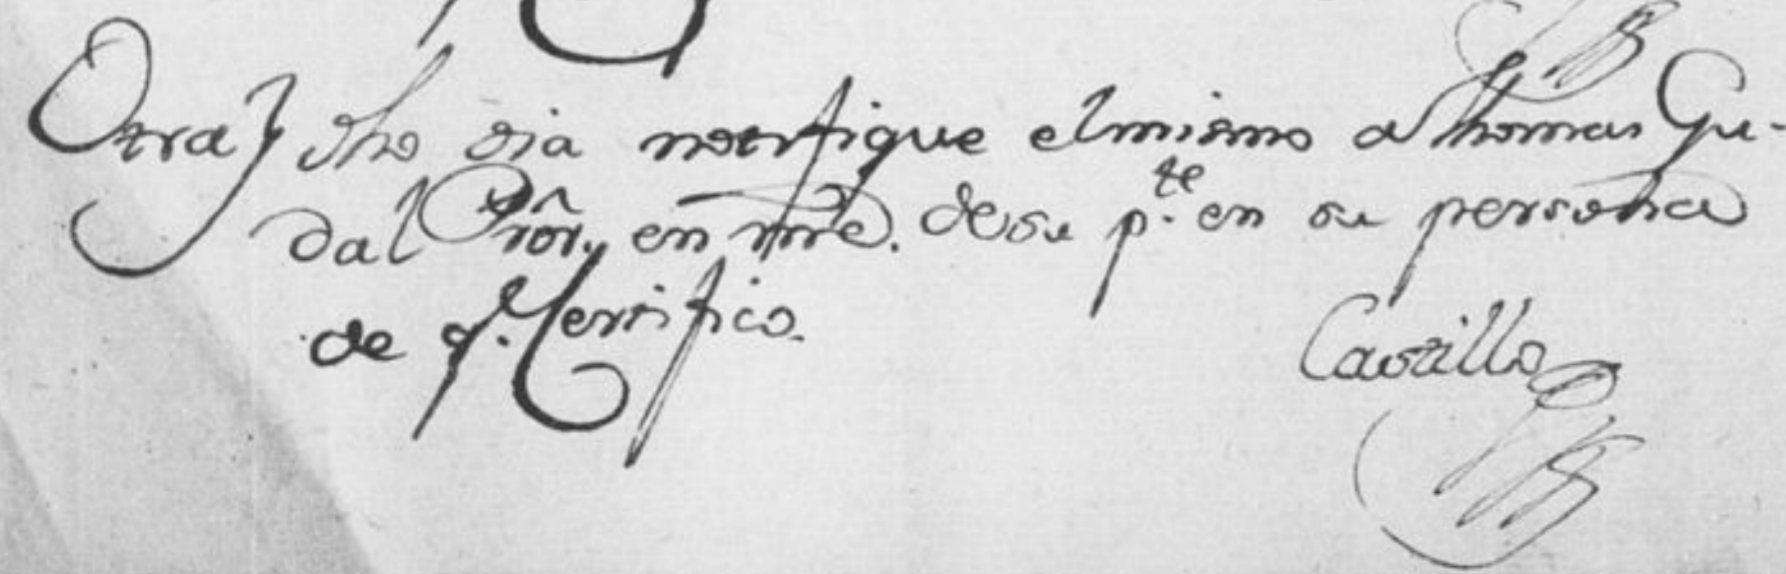 Otra} dho dia notifique el mismo a Thomas Gu-
dal Prôr. en nrē. de su p.te en su persona
de q.e Certifico.
Castillo